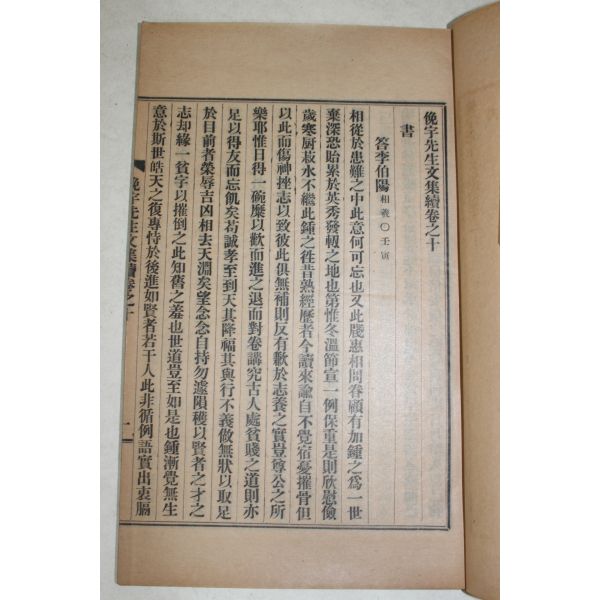 俛宇先生文集續卷之十
書
答李伯陽 相羲○壬寅
相從於患難之中此意何可忘也又此牋惠相問眷顧有加鍾之爲一世
棄深恐貽累於英秀發軔之地也第惟冬溫節宣一例保重是則欣慰儉
歲寒厨菽水不繼此鍾之徃昔熟經歷者今讀來諭自不覺宿憂摧骨但
以此而傷神挫志以致彼此俱無補則反有歉於志養之實豈尊公之所
樂耶惟日得一碗糜以歡而進之退而對卷講究古人處貧賤之道則亦
足以得友而忘飢矣曷誠孝至到天其降福其與行不義做無狀以取足
於目前者榮辱吉凶相去天淵矣望念念自持勿遽隕穫以賢者之才之
志却緣一貧字以摧倒之此知舊之羞也世道豈至如是也鍾漸覺無生
意於斯世皓天之復專恃於後進如賢者若干人此非循例語實出衷膈
俛宇先生文集續卷之十 一